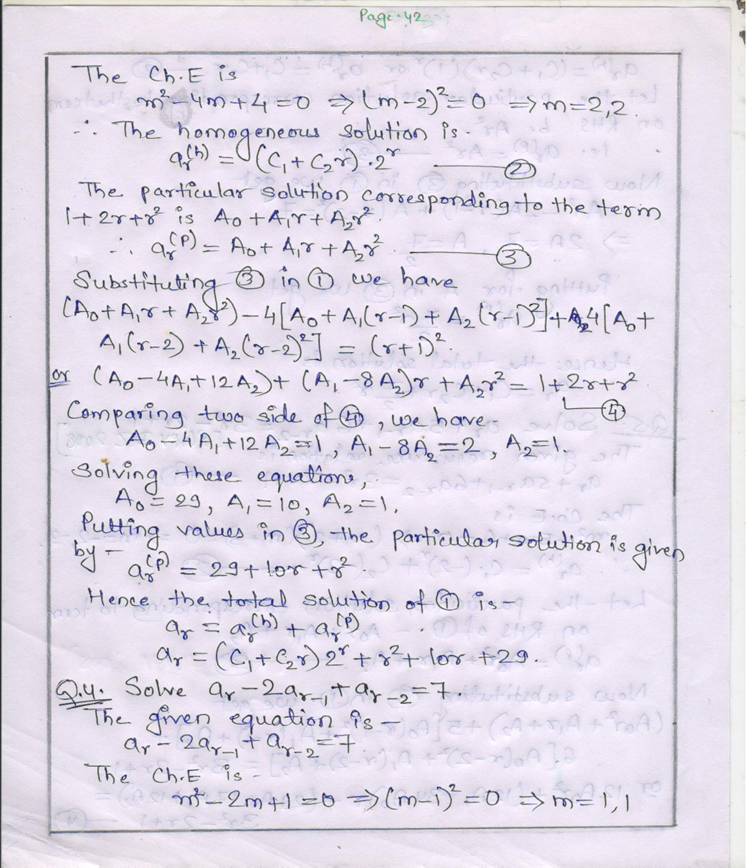 Page-42
The Ch.E is
m²-4m+4=0 ⇒(m-2)²=0 ⇒m=2,2.
∴ The homogeneous solution is-
aᵣ⁽ʰ⁾ = (C₁+C₂r)·2ʳ ②
The particular solution corresponding to the term
1+2r+r² is A₀+A₁r+A₂r²
∴ aᵣ⁽ᵖ⁾ = A₀+A₁r+A₂r² ③
Substituting ③ in ① we have
(A₀+A₁r+A₂r²)-4[A₀+A₁(r-1)+A₂(r-1)²]+4[A₀+
A₁(r-2)+A₂(r-2)²] = (r+1)².
or (A₀-4A₁+12A₂)+(A₁-8A₂)r+A₂r²=1+2r+r²
④
Comparing two side of ④, we have
A₀-4A₁+12A₂=1, A₁-8A₂=2, A₂=1.
Solving these equations,
A₀=29, A₁=10, A₂=1.
Putting values in ③, the particular solution is given
by-
aᵣ⁽ᵖ⁾ = 29+10r+r²
Hence the total solution of ① is-
aᵣ = aᵣ⁽ʰ⁾+aᵣ⁽ᵖ⁾
aᵣ = (C₁+C₂r)2ʳ+r²+10r+29.
Q.4. Solve aᵣ-2aᵣ₋₁+aᵣ₋₂=7.
The given equation is-
aᵣ-2aᵣ₋₁+aᵣ₋₂=7
The Ch.E is-
m²-2m+1=0 ⇒(m-1)²=0 ⇒m=1,1